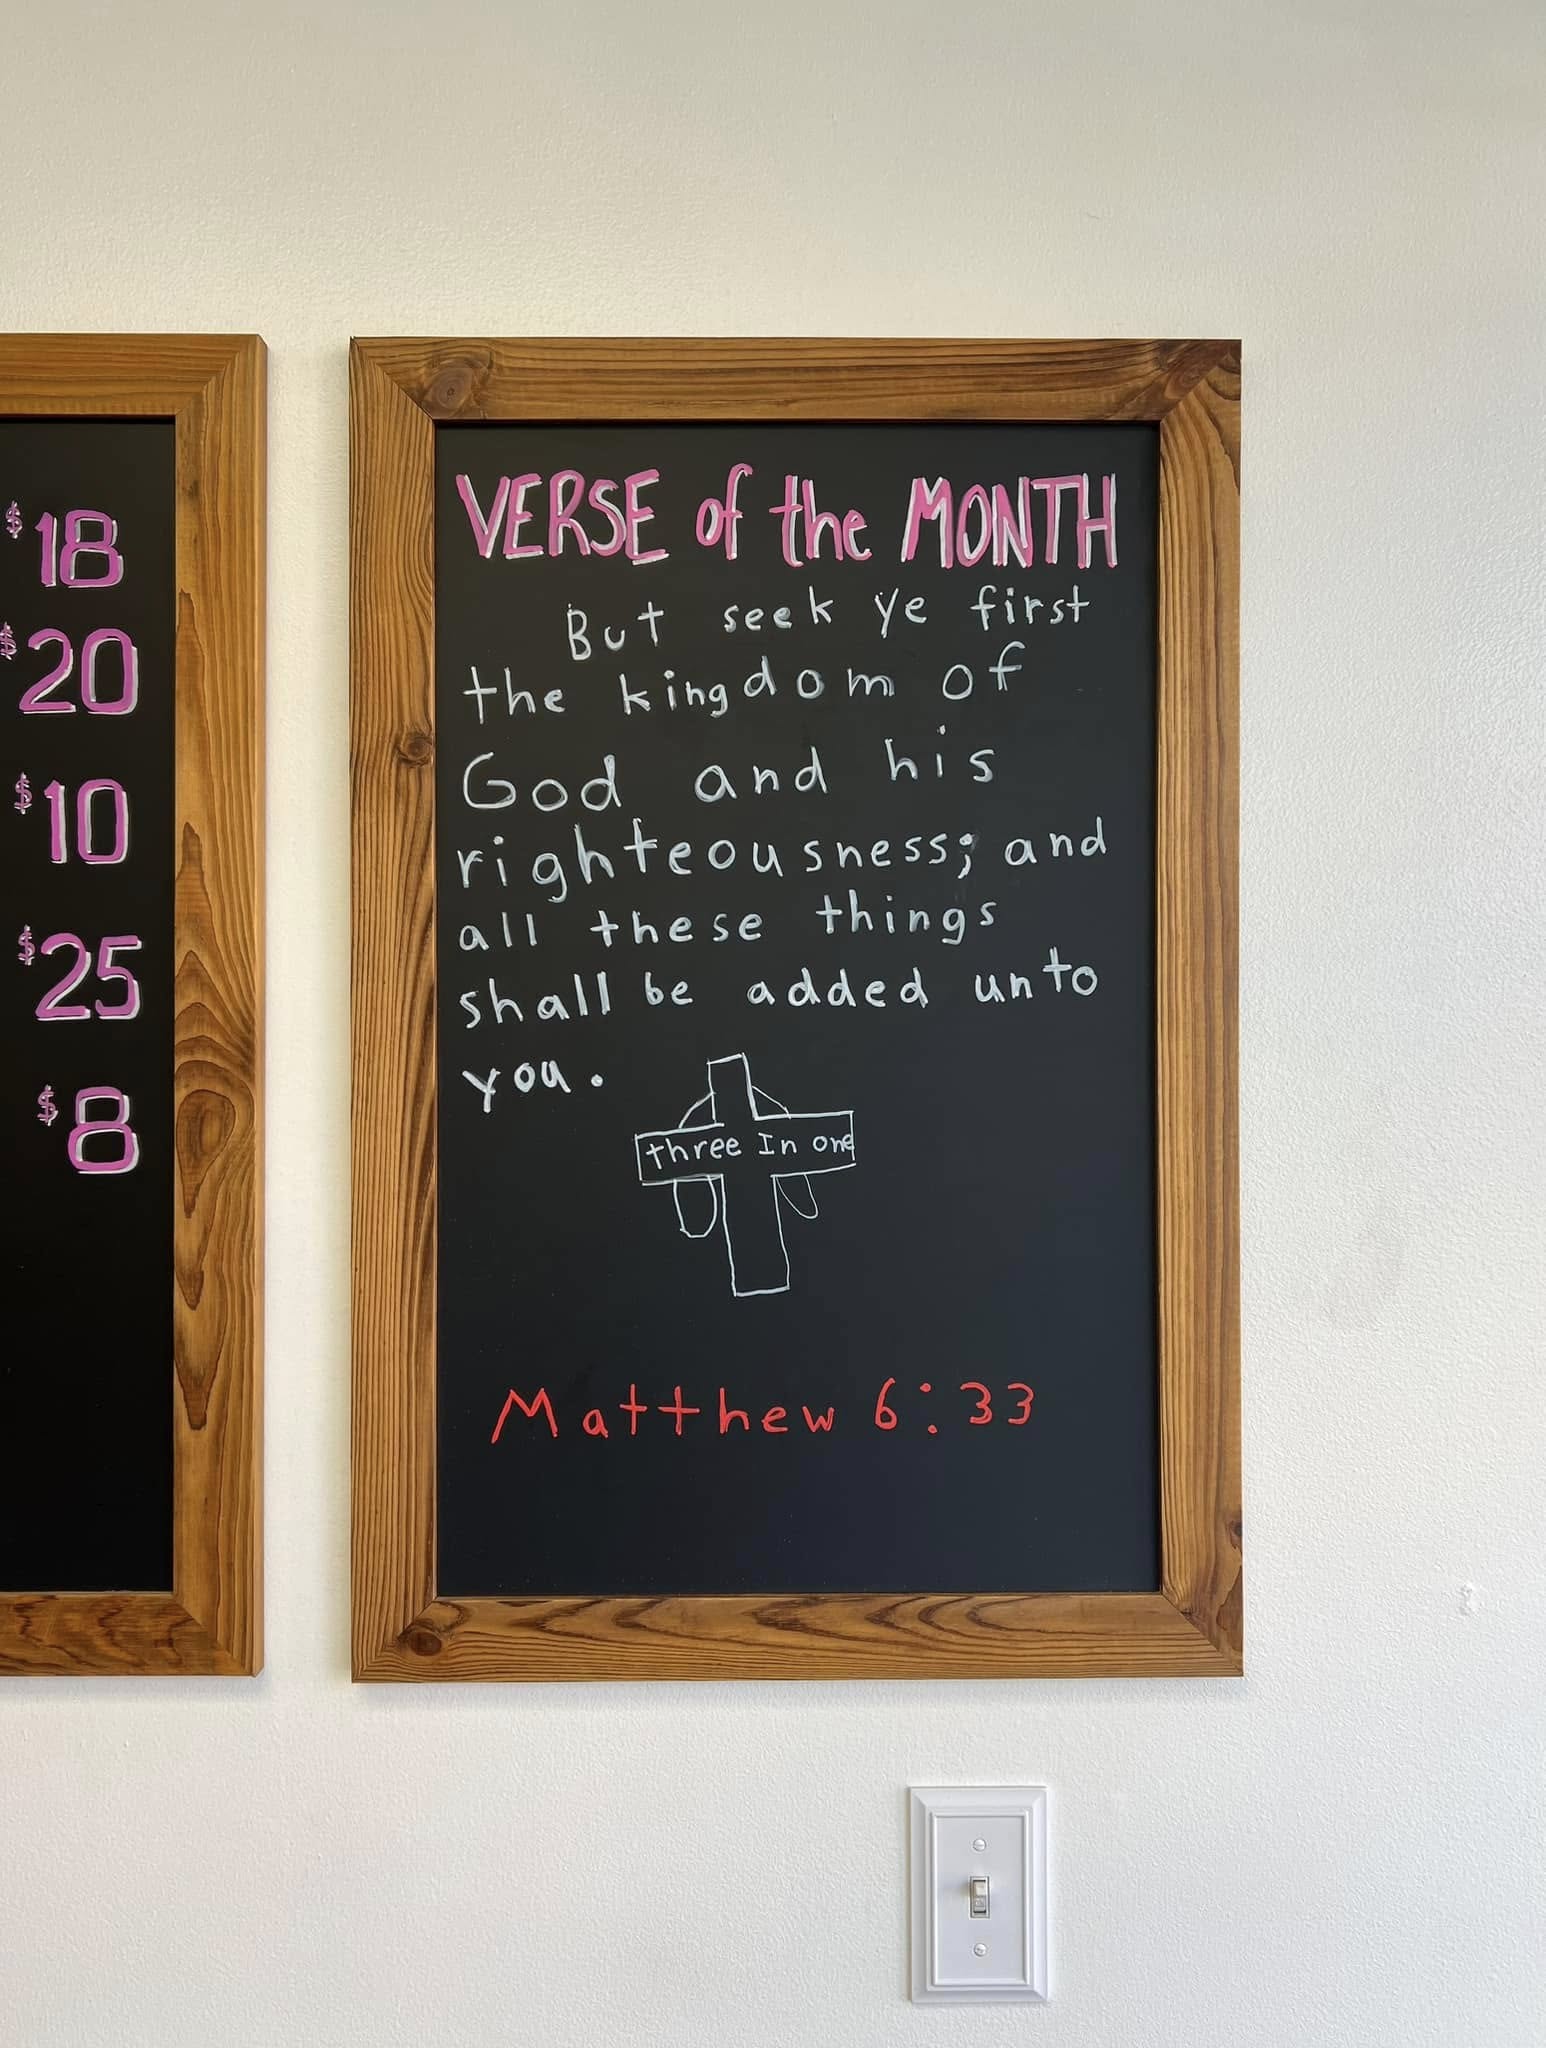 $18
$20
$10
$25
$8
VERSE of the MONTH
But seek ye first
the kingdom of
God and his
righteousness; and
all these things
shall be added unto
you.
three In one
Matthew 6:33